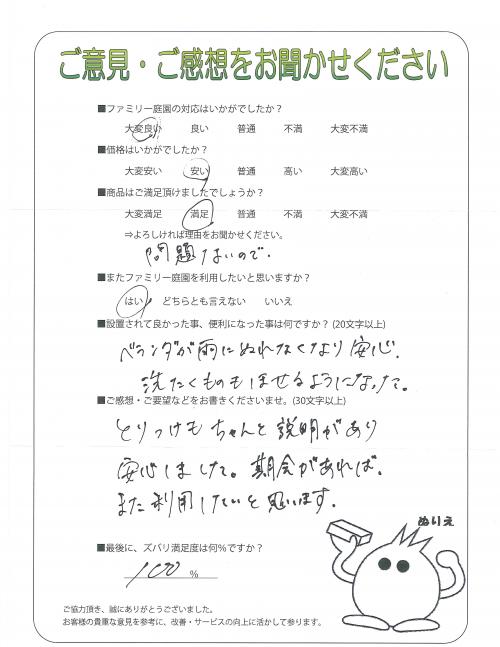 ご意見・ご感想をお聞かせください
■ファミリー庭園の対応はいかがでしたか？
大変良い 良い 普通 不満 大変不満
■価格はいかがでしたか？
大変安い 安い 普通 高い 大変高い
■商品はご満足頂けましたでしょうか？
大変満足 満足 普通 不満 大変不満
⇒よろしければ理由をお聞かせください。
問題ないので.
■またファミリー庭園を利用したいと思いますか？
はい どちらとも言えない いいえ
■設置されて良かった事、便利になった事は何ですか？(20文字以上)
ベランダが雨にぬれなくなり安心.
洗たくものもほせるようになった。
■ご感想・ご要望などをお書きくださいませ。(30文字以上)
とりつけもちゃんと説明があり
安心しました。期会があれば.
また利用したいと思います.
ぬりえ
■最後に、ズバリ満足度は何％ですか？
100 %
ご協力頂き、誠にありがとうございました。
お客様の貴重な意見を参考に、改善・サービスの向上に活かして参ります。